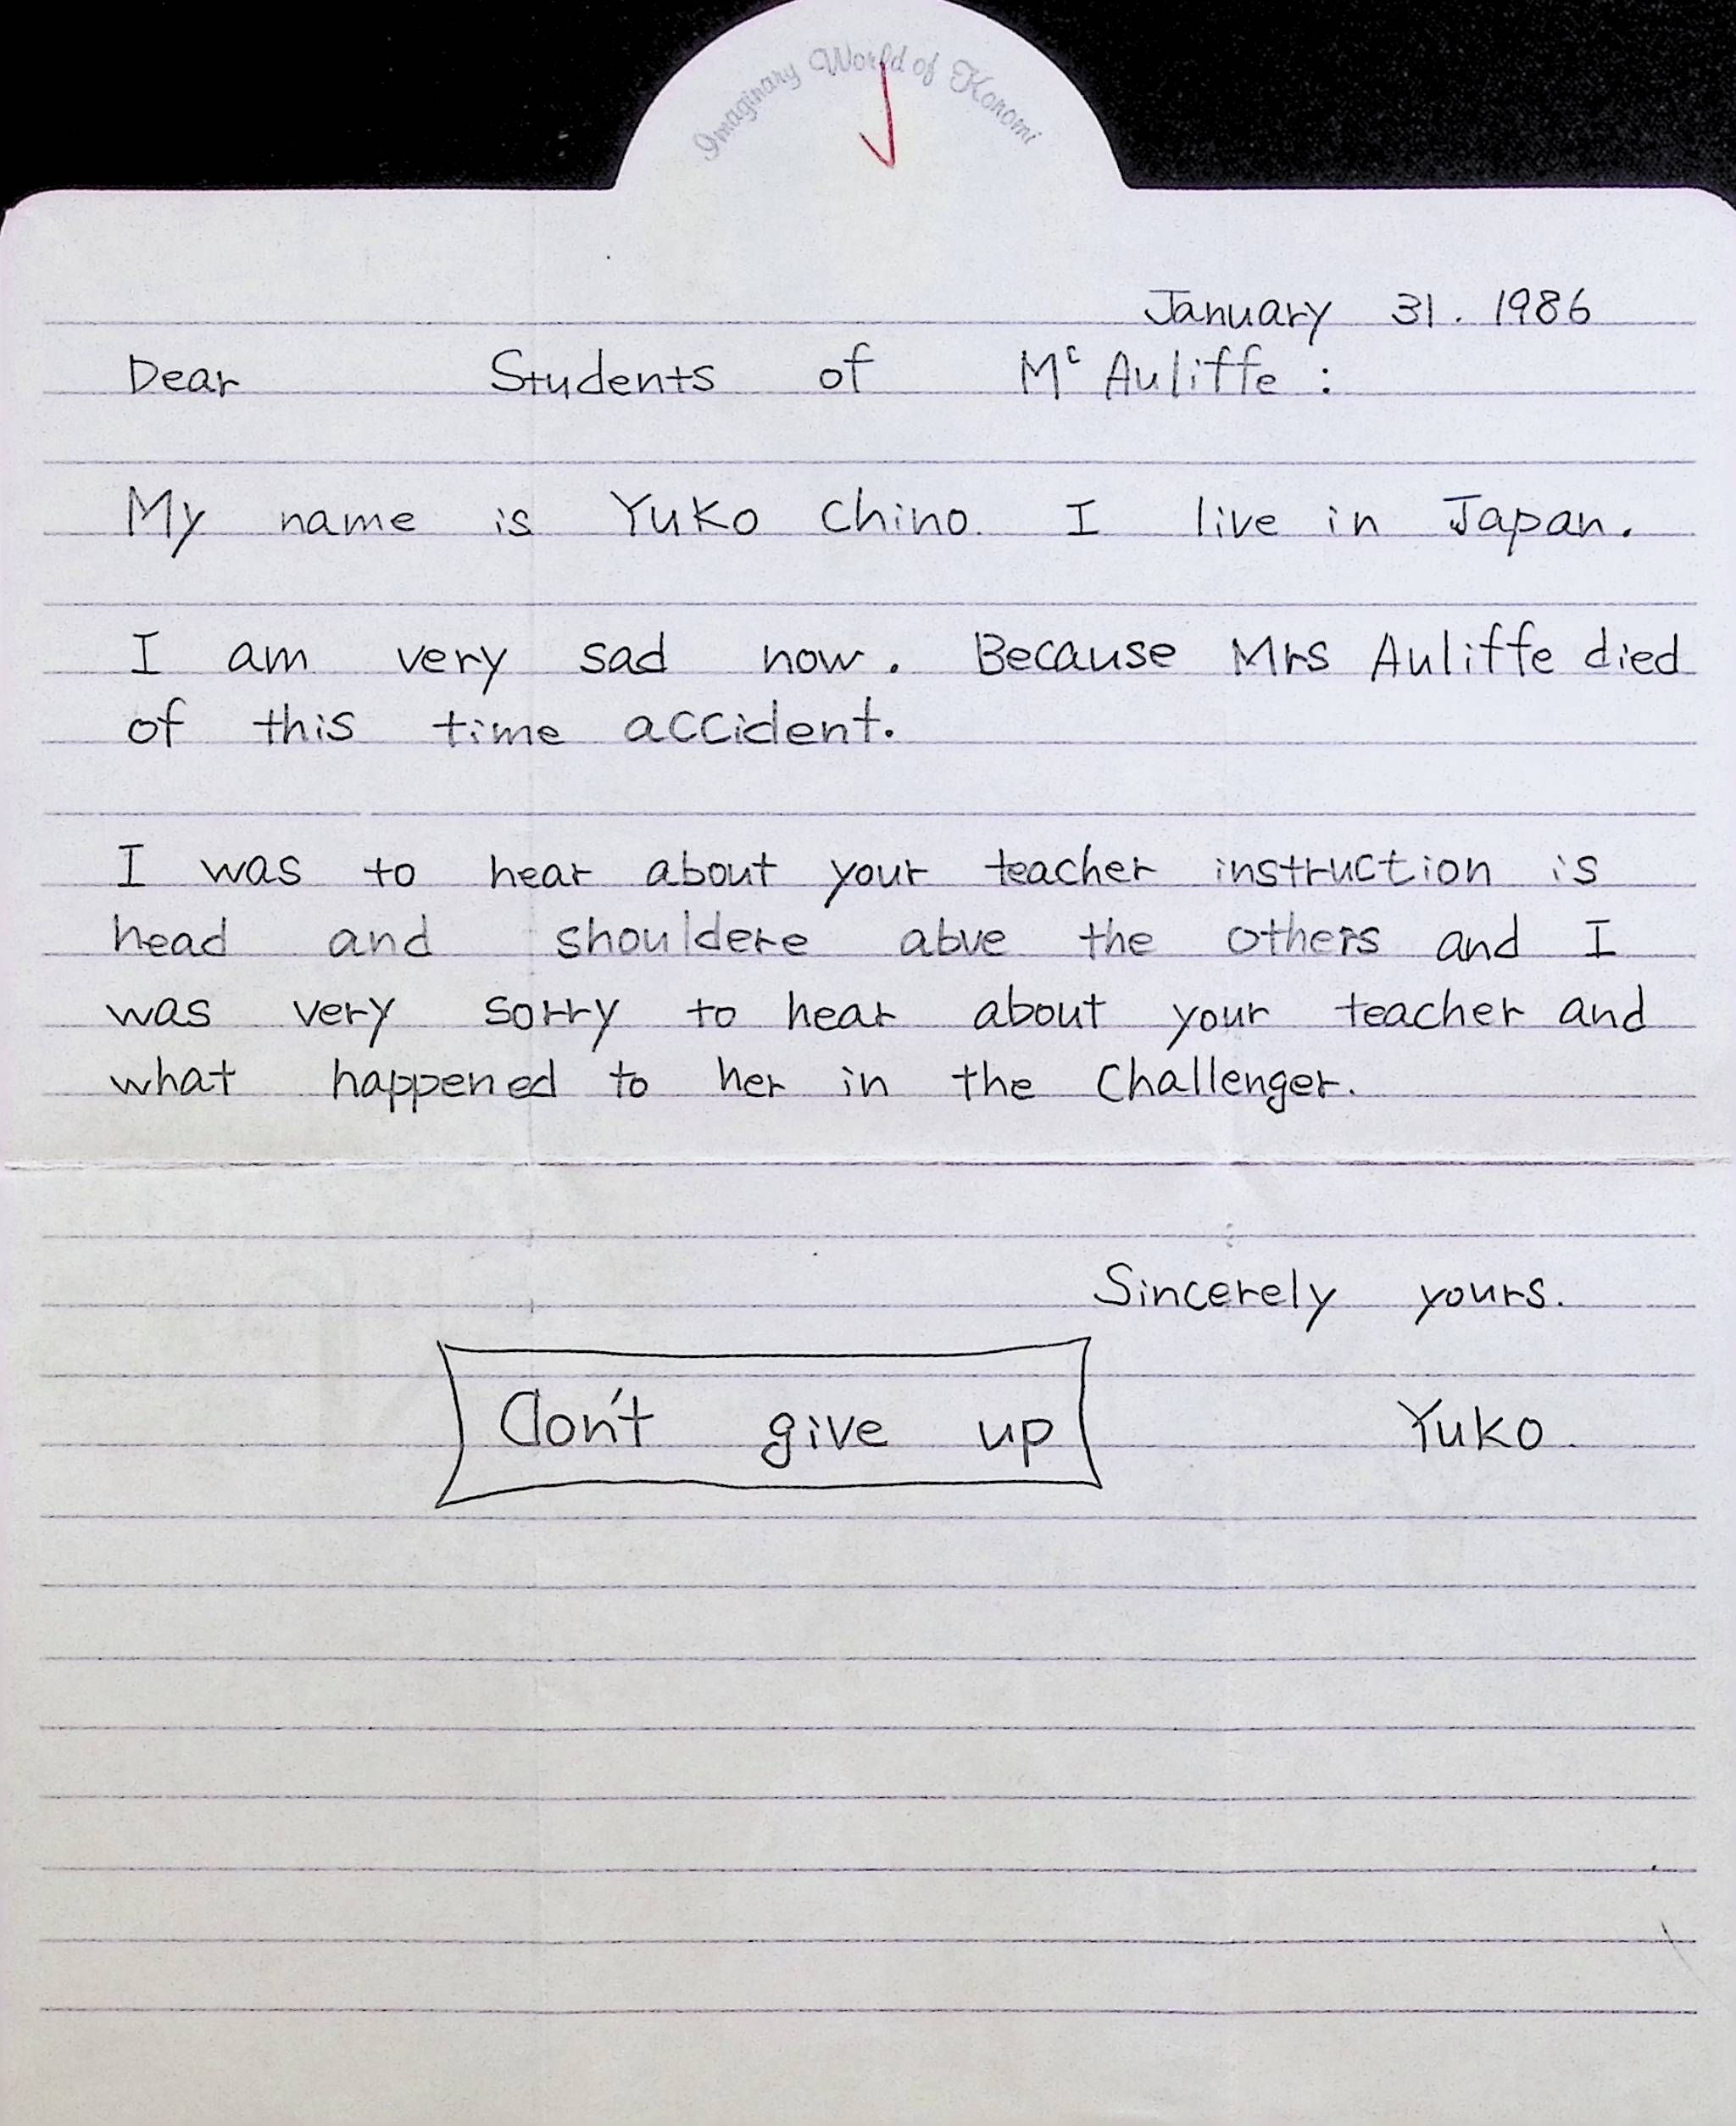 Imaginary World of Konomi
January 31. 1986
Dear Students of Mc Auliffe :
My name is Yuko Chino. I live in Japan.
I am very sad now. Because Mrs Auliffe died
of this time accident.
I was to hear about your teacher instruction is
head and shouldere abve the others and I
was very sorry to hear about your teacher and
what happened to her in the Challenger.
Sincerely yours.
Don't give up
Yuko.